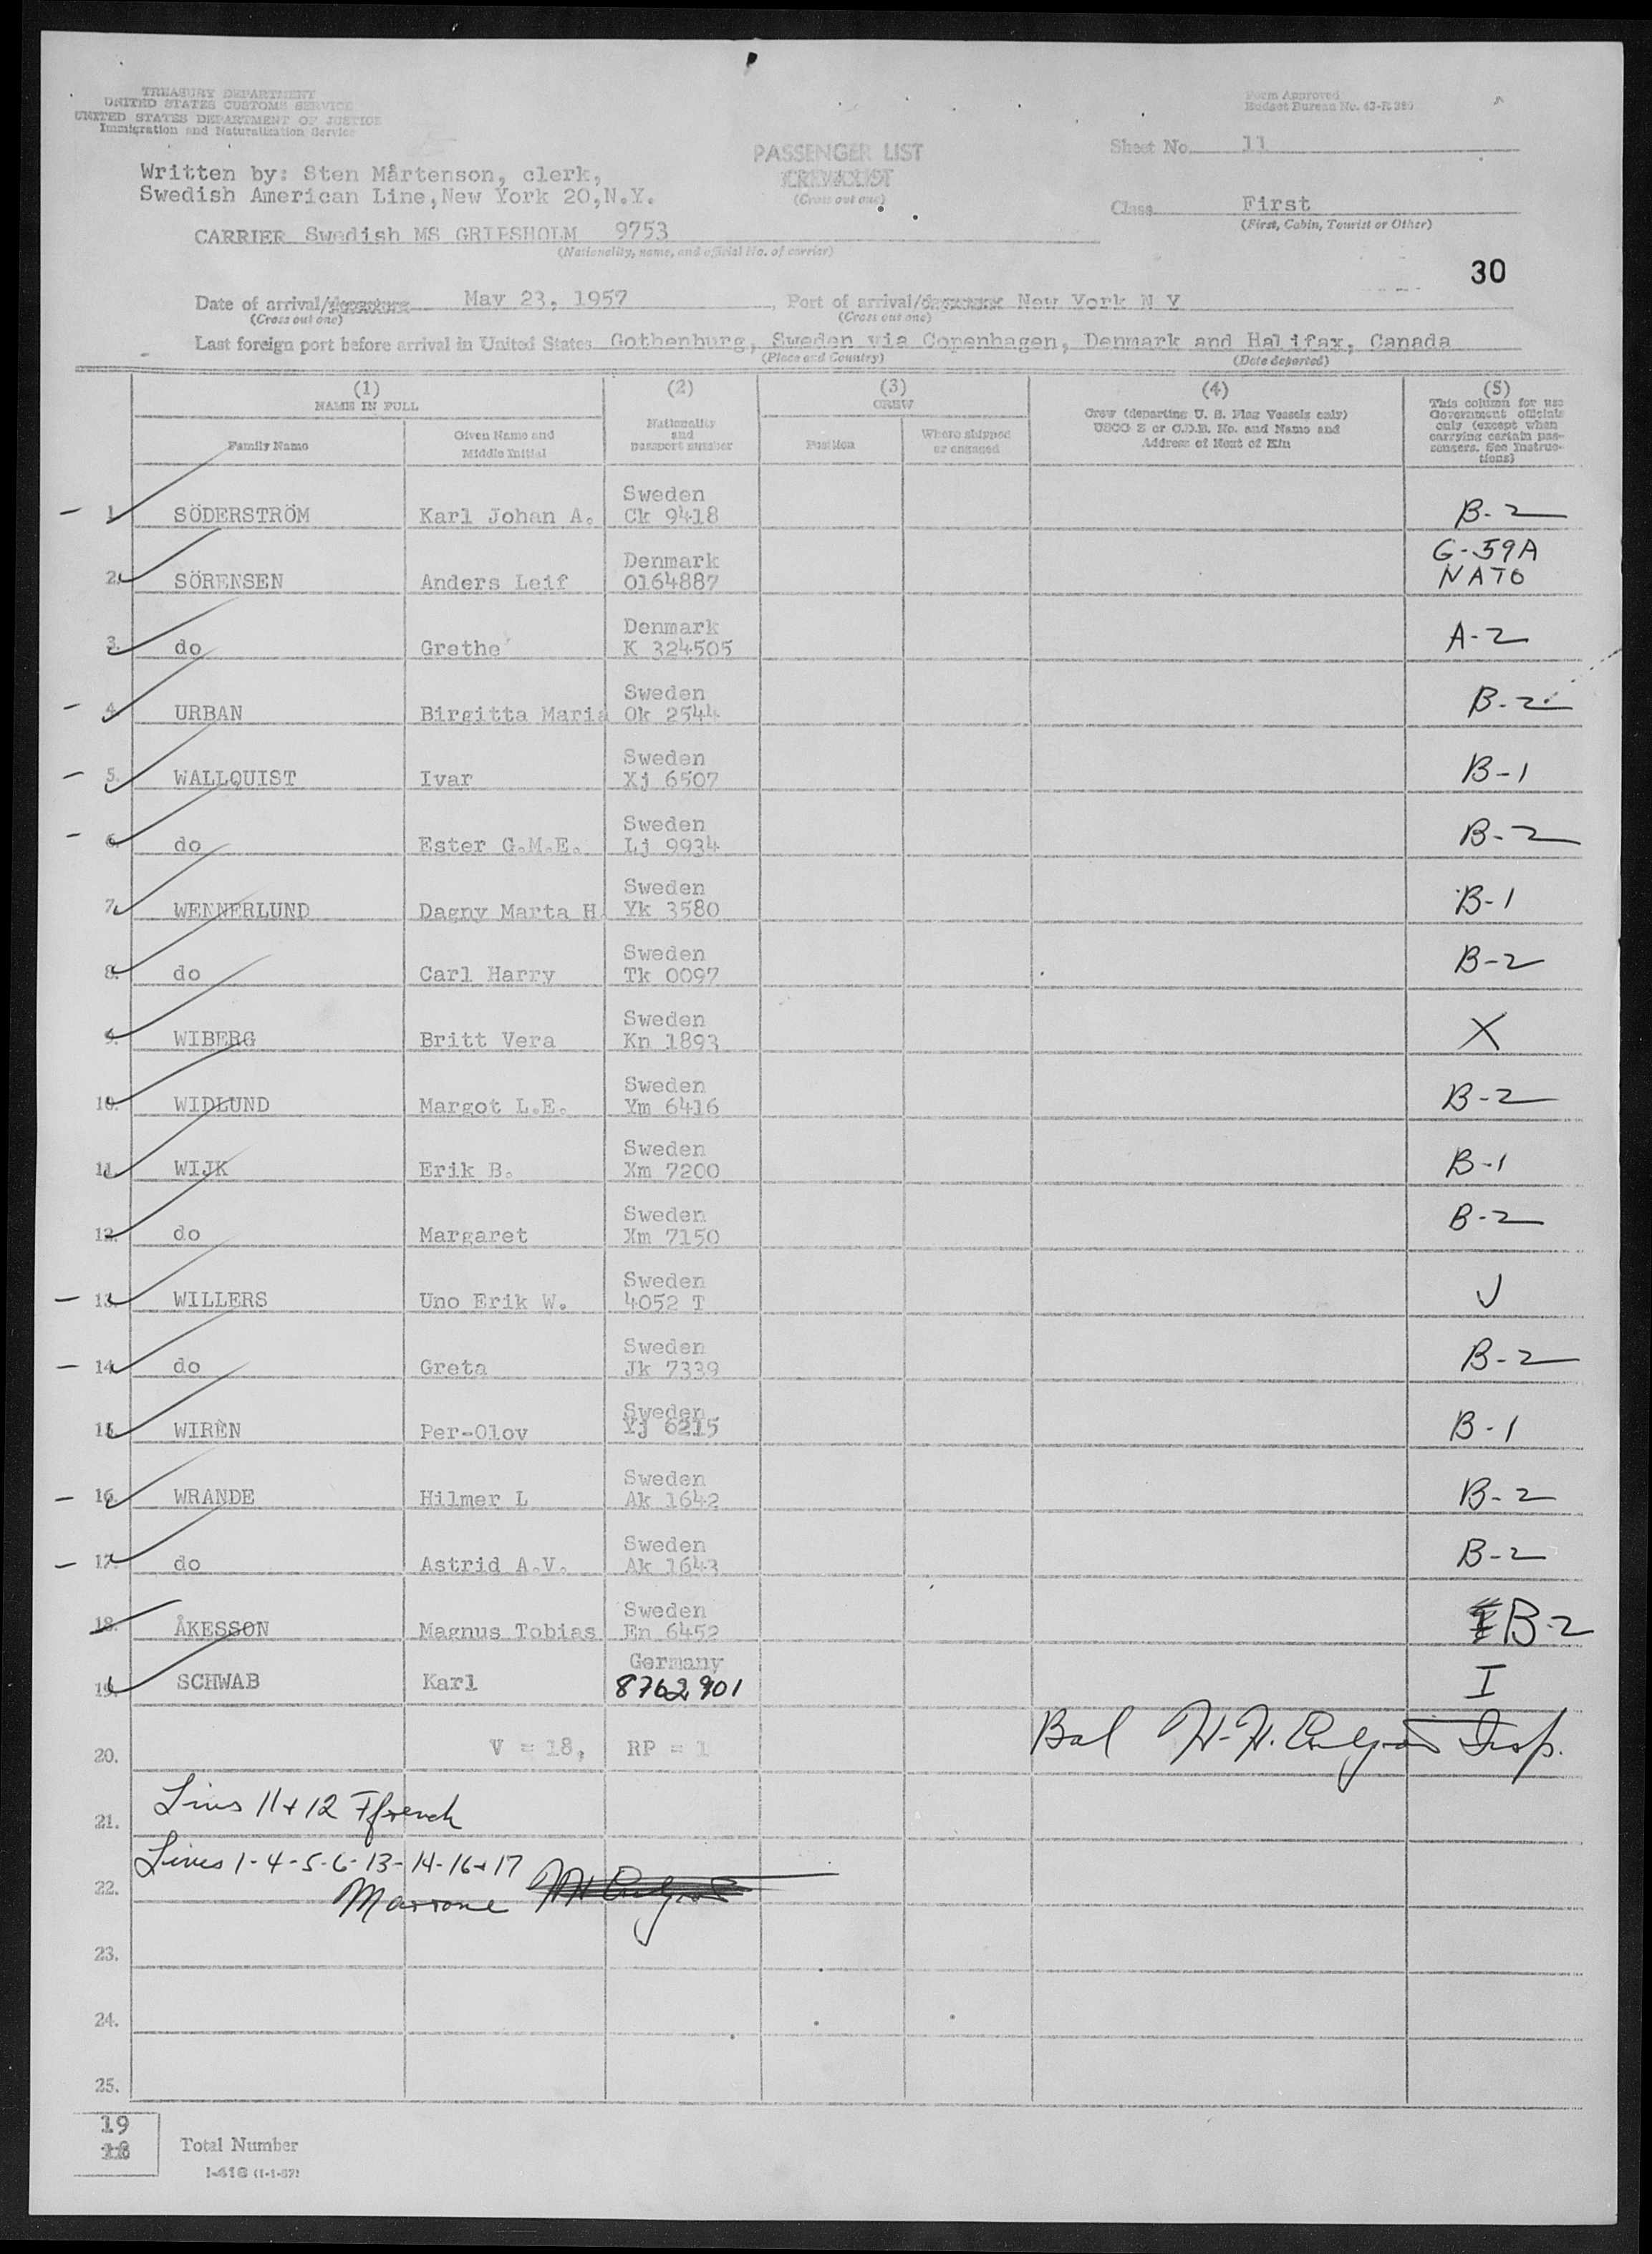 TREASURY DEPARTMENT
UNITED STATES CUSTOMS SERVICE
UNITED STATES DEPARTMENT OF JUSTICE
Immigration and Naturalization Service
Form Approved
Budget Bureau No. 43-R
Written by: Sten Mårtenson, clerk,
Swedish American Line,New York 20,N.Y.
PASSENGER LIST
CREW LIST
(Cross out one)
Sheet No. 11
Class First
(First, Cabin, Tourist or Other)
CARRIER Swedish MS GRIPSHOLM 9753
(Nationality, name, and official No. of carrier)
30
Date of arrival/departure May 23, 1957, Port of arrival/departure New York N Y
(Cross out one) (Cross out one)
Last foreign port before arrival in United States Gothenburg, Sweden via Copenhagen, Denmark and Halifax, Canada
(Place and Country) (Date departed)
(1) (2) (3) (4) (5)
NAME IN FULL
Family Name
Given Name and
Middle Initial
Nationality
and
passport number
CREW
Position
Where shipped
or engaged
Crew (departing U. S. Flag Vessels only)
USCG Z or C.D.B. No. and Name and
Address of Next of Kin
This column for use
Government officials
only (except when
carrying certain pas-
sengers. See Instruc-
tions)
Sweden
1. SÖDERSTRÖM Karl Johan A. Ck 9418 B-2
Denmark G-59A
2. SÖRENSEN Anders Leif 0164887 NATO
Denmark
3. do Grethe K 324505 A-2
Sweden
4. URBAN Birgitta Maria Ok 2544 B-2
Sweden
5. WALLQUIST Ivar Xj 6507 B-1
Sweden
6. do Ester G.M.E. Lj 9934 B-2
Sweden
7. WENNERLUND Dagny Marta H. Yk 3580 B-1
Sweden
8. do Carl Harry Tk 0097 B-2
Sweden
9. WIBERG Britt Vera Kn 1893 X
Sweden
10. WIDLUND Margot L.E. Ym 6416 B-2
Sweden
11. WIJK Erik B. Xm 7200 B-1
Sweden
12. do Margaret Xm 7150 B-2
Sweden
13. WILLERS Uno Erik W. 4052 T
Sweden
14. do Greta Jk 7339 B-2
Sweden
15. WIRÈN Per-Olov Yj 6215 B-1
Sweden
16. WRANDE Hilmer L Ak 1642 B-2
Sweden
17. do Astrid A.V. Ak 1643 B-2
Sweden
18. ÅKESSON Magnus Tobias En 6452 B-2
Germany
19. SCHWAB Karl 8762901 I
20. V = 18, RP = 1 Bal Insp.
21. Lines 11+12 Ffrench
Lines 1-4-5-6-13-14-16+17
22. Marrone
23.
24.
25.
19
18
Total Number
I-418 (1-1-57)